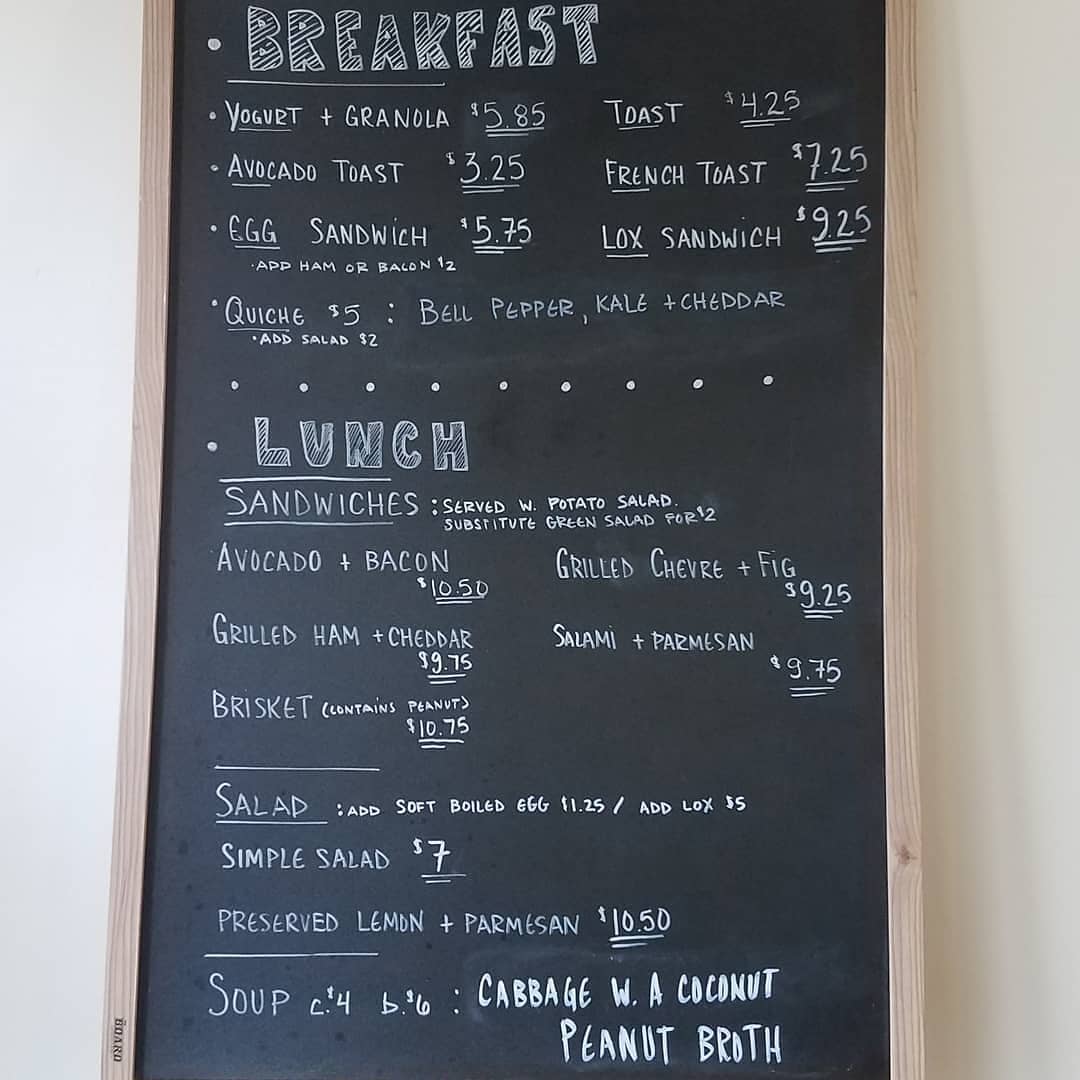 • BREAKFAST
• YOGURT + GRANOLA $5.85 TOAST $4.25
• AVOCADO TOAST $3.25 FRENCH TOAST $7.25
• EGG SANDWICH $5.75 LOX SANDWICH $9.25
• ADD HAM OR BACON $2
• QUICHE $5 : BELL PEPPER, KALE + CHEDDAR
• ADD SALAD $2
• LUNCH
SANDWICHES : SERVED W. POTATO SALAD.
SUBSTITUTE GREEN SALAD FOR $2
AVOCADO + BACON GRILLED CHEVRE + FIG
$10.50 $9.25
GRILLED HAM + CHEDDAR SALAMI + PARMESAN
$9.75 $9.75
BRISKET (CONTAINS PEANUT)
$10.75
SALAD : ADD SOFT BOILED EGG $1.25 / ADD LOX $5
SIMPLE SALAD $7
PRESERVED LEMON + PARMESAN $10.50
SOUP C.$4 b.$6 : CABBAGE W. A COCONUT
PEANUT BROTH
BOARD